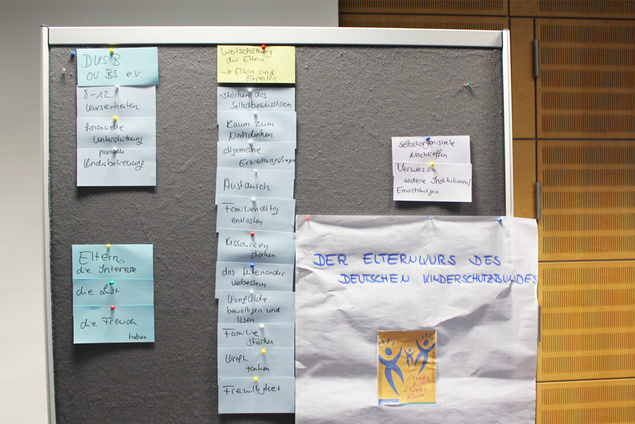 DKSB
OV BS e.V.
8-12
Kurseinheiten
finanzielle
Unterstützung
Kinderbetreuung
Eltern,
die Interesse
die Lust
die Freude
haben
Wertschätzung
der Eltern
→ Eltern sind
Experten
stärkung des
Selbstbewusstsein
Raum zum
Nachdenken
allgemeine
Erziehungsfragen
Austausch
Familienalltag
entlasten
Ressourcen
stärken
das Miteinander
verbessern
Konflikte
bewältigen und
lösen
Familie
stärken
Kraft
tanken
Freiwilligkeit
selbstorganisierte
Nachtreffen
Verweis an
andere Institutionen/
Einrichtungen
DER ELTERNKURS DES
DEUTSCHEN KINDERSCHUTZBUNDES
Starke Eltern
Starke
Kinder